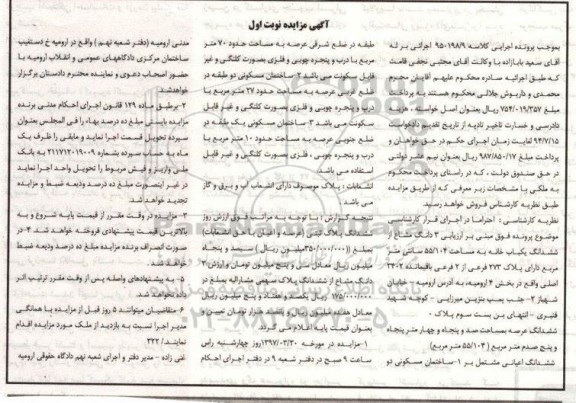 آگهی مزایده نوبت اول
بموجب پرونده اجرایی کلاسه ۹۵۰۱۹۸۹ اجرائی بر له
آقای سعید بابازاده با وکالت آقای مجتبی نجفی قامت
که طبق اجرائیه صادره محکوم علیهم آقایان محرم
محمدی و داریوش جلالی محکوم هستند به پرداخت
مبلغ ۷۵۴/۰۱۹/۳۵۷ ریال بعنوان اصل خواسته و هزینه
دادرسی و خسارت تاخیر تادیه از تاریخ تقدیم دادخواست
۹۴/۷/۱۵ لغایت زمان اجرای حکم در حق خواهان و
پرداخت مبلغ ۹۸۷/۸۵۰/۱۷ ریال بعنوان نیم عشر دولتی
در حق صندوق دولت ، که در راستای پرداخت محکوم
به ملکی با مشخصات زیر معرفی که از طریق مزایده
طبق نظریه کارشناس فروش خواهد رسید.
نظریه کارشناسی : احتراما در اجرای قرار کارشناسی
موضوع پرونده فوق مبنی بر ارزیابی ۳ دانگ مشاع از
ششدانگ یکباب خانه به مساحت ۵۵/۱۰۴ سانتی متر
مربع دارای پلاک ۲۷۳ فرعی از ۲ فرعی باقیمانده ۳۴۰۲
اصلی واقع در بخش ۴ ارومیه، به آدرس ارومیه- خیابان
شهباز ۲- جنب پمپ بنزین میرزایی - کوچه شهید
قنبری - انتهای بن بست سوم پلاک ۰
ششدانگ عرصه بمساحت صد و پنجاه و چهار متر پنجاه
و پنج صدم متر مربع (۵۵/۱۰۴ متر مربع)
ششدانگ اعیانی مشتمل بر ۱-ساختمان مسکونی دو
طبقه در ضلع شرقی عرصه به مساحت حدود ۷۰ متر
مربع با درب و پنجره چوبی و فلزی بصورت کلنگی و غیر
قابل سکونت می باشد ۲-ساختمان مسکونی دو طبقه در
ضلع غربی عرصه به مساحت حدود ۲۷ متر مربع با
درب و پنجره چوبی و فلزی بصورت کلنگی و غیر قابل
سکونت می باشد ۳-ساختمان مسکونی یک طبقه در
ضلع جنوبی عرصه به مساحت حدود ۱۰ متر مربع با
درب و پنجره چوبی ، فلزی بصورت کلنگی و غیر قابل
استفاده می باشد.
انشعابات : پلاک موصوف دارای انشعاب آب و برق و گاز
می باشد.
نتیجه گزارش : با توجه به مراتب فوق ارزش روز
ششدانگ پلاک ثبتی (عرصه و اعیان با حق انشعابات)
بمبلغ (۳۵۰/۰۰۰/۰۰۰میلیون ریال ) سیصد و پنجاه
میلیون ریال معادل سی و پنج میلیون تومان و ارزش ۳
دانگ مشاع از ششدانگ پلاک سهمی مشارالیه بمبلغ در
۱۷۵/۰۰۰/۰۰۰ ریال یکصد و هفتاد و پنج میلیون ریال
معادل هفده میلیون و پانصد هزار تومان تعیین و
بعنوان قیمت پایه اعلام می گردد.
۱-مزایده در مورخه ۱۳۹۷/۰۳/۳۰روز چهارشنبه راس
ساعت ۹ صبح در دفتر شعبه ۹ دفتر اجرای احکام
مدنی ارومیه (دفتر شعبه نهم ) واقع در ارومیه خ دستغیب
ساختمان مرکزی دادگاههای عمومی و انقلاب ارومیه با
حضور اصحاب دعوی و نماینده محترم دادستان برگزار
خواهدشد.
۲-برطبق ماده ۱۲۹ قانون اجرای احکام مدنی برنده
مزایده بایستی مبلغ ده درصد بهاء را فی المجلس بعنوان
سپرده تحویل قسمت اجرا نماید و مابقی را ظرف یک
ماه به حساب سپرده بشماره ۲۱۱۷۱۲۰۱۹۰۰۹ به بانک
ملی واریز و فیش مربوط را تحویل واحد اجرا نماید
در غیر اینصورت مبلغ ده درصد ودیعه ضبط و مزایده
تجدید خواهد شد.
۳- مزایده در وقت مقرر از قیمت پایه شروع و به
بالاترین قیمت پیشنهادی فروخته خواهد شد ۴-در
صورت انصراف برنده مزایده مبلغ ده درصد ودیعه ضبط
خواهد شد.
۵- به پیشنهادهای واصله پس از وقت مقرر ترتیب اثر
داده نخواهد شد.
۶-متقاضیان میتوانند ۵ روز قبل از مزایده با هماهنگی
مدیر اجرا نسبت به بازدید از ملک مورد مزایده اقدام
نمایند./ ۳۲۲
غنی زاده - مدیر دفتر و اجرای شعبه نهم دادگاه حقوقی ارومیه